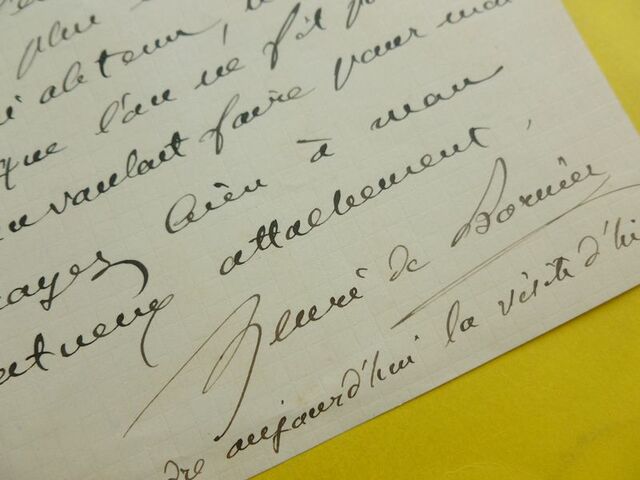 plus
obtenu,
que l'on ne fît
voulant faire pour mon
croyez bien à mon
affectueux attachement,
Henri de Bornier
aujourd'hui la visite d'hi